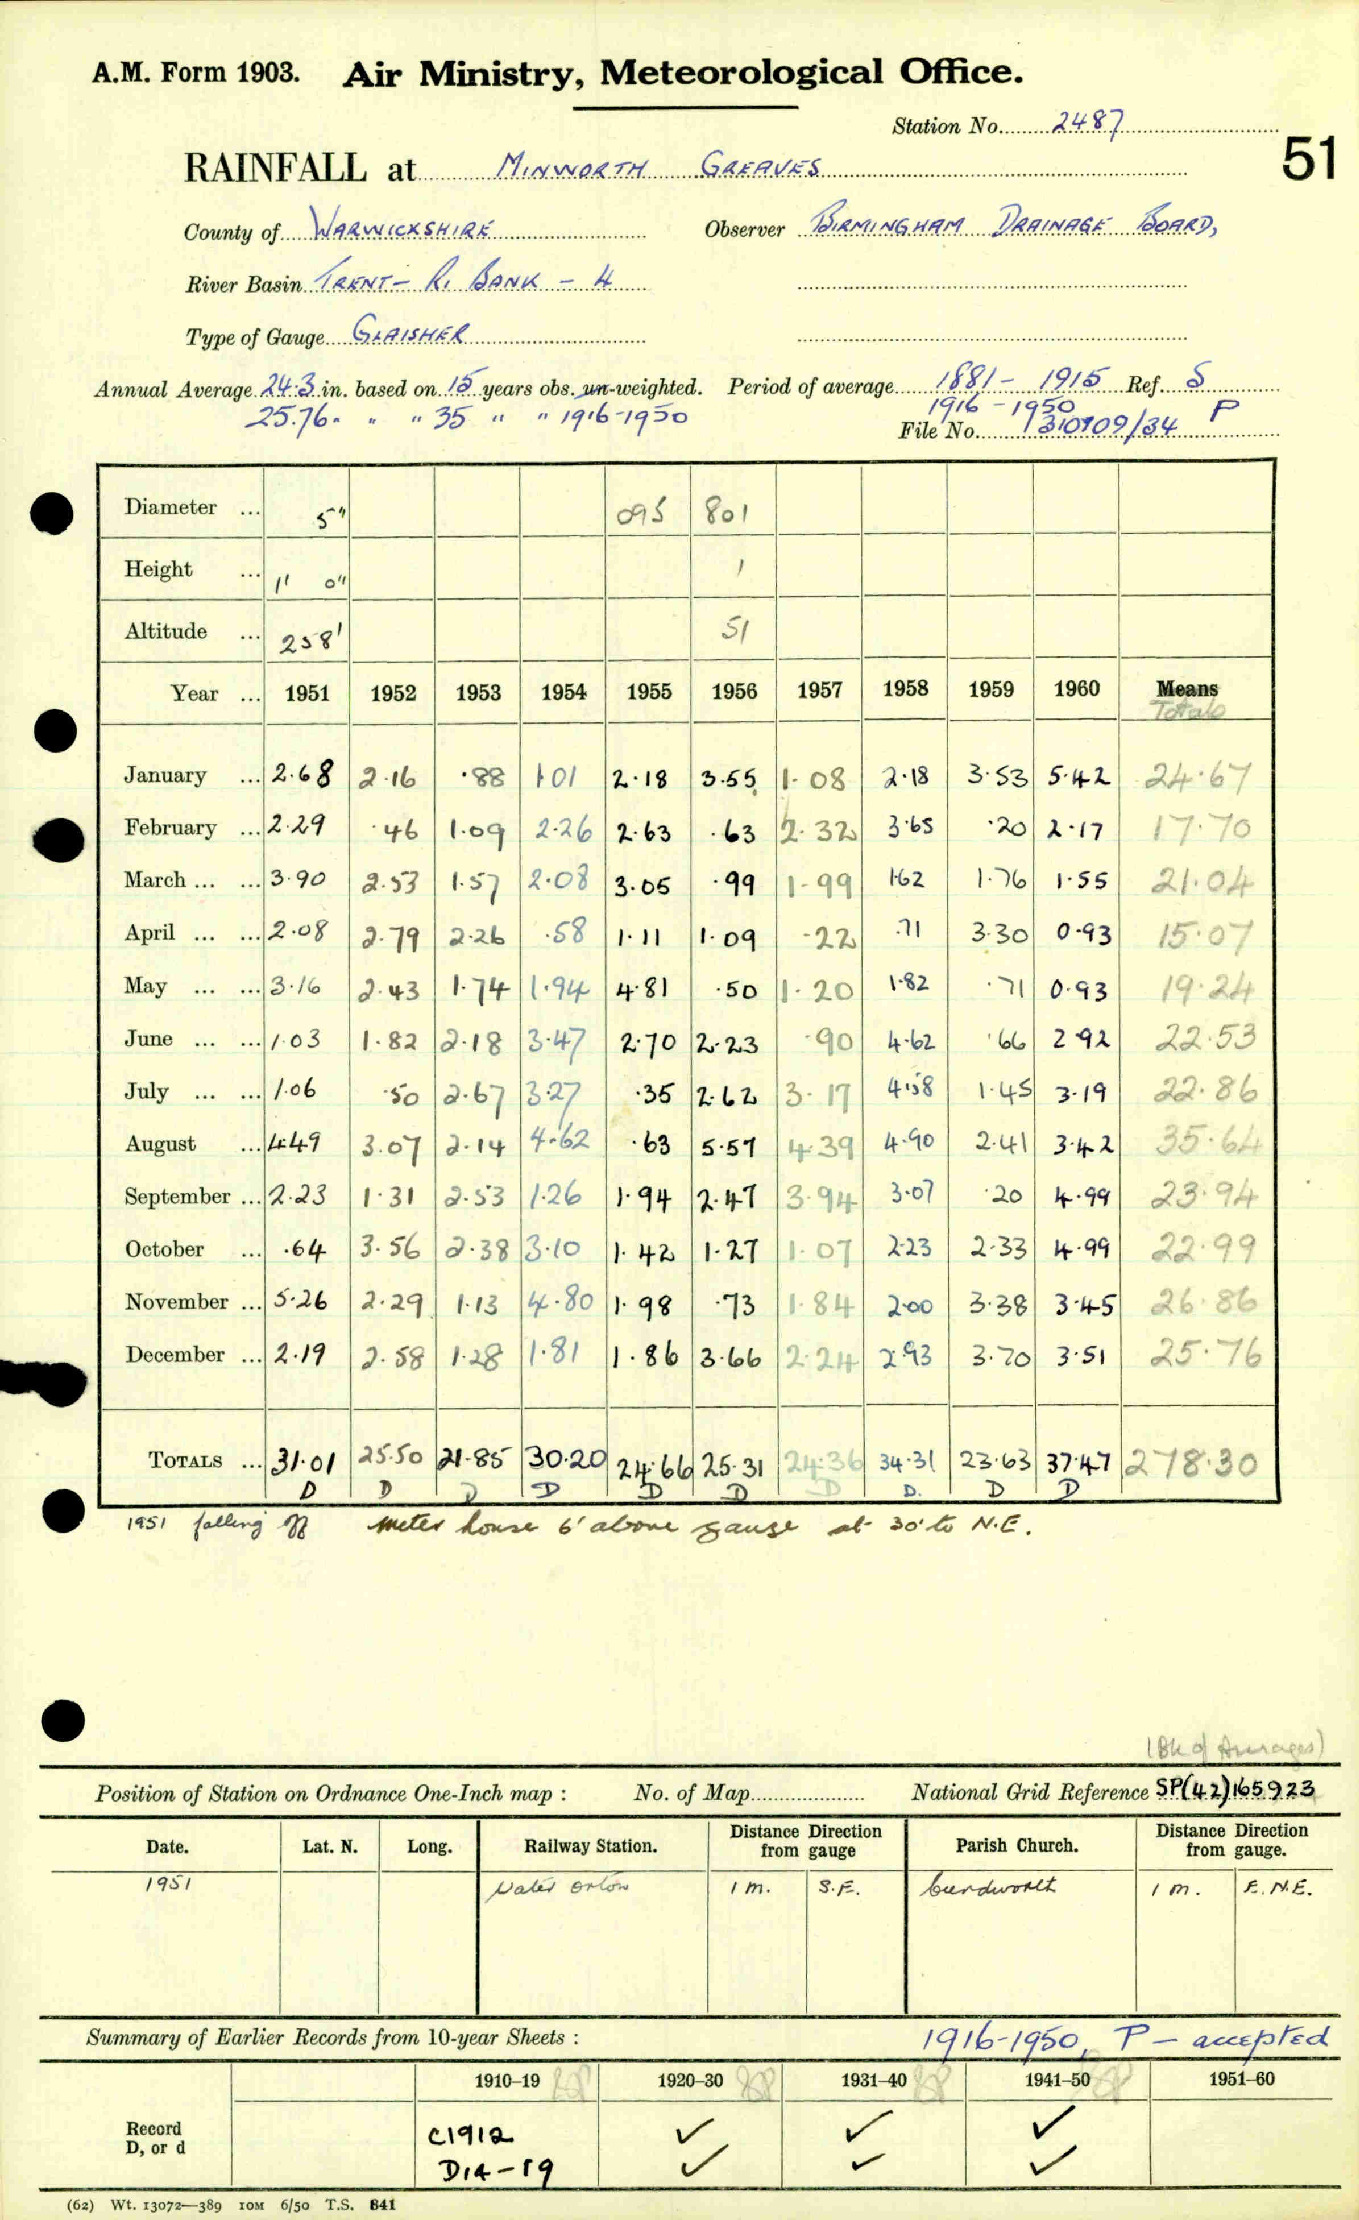 A.M. Form 1903. Air Ministry, Meteorological Office.
Station No. 2487
51
RAINFALL at MINWORTH GREAVES
County of WARWICKSHIRE Observer BIRMINGHAM DRAINAGE BOARD,
River Basin TRENT- R. BANK - 4
Type of Gauge GLAISHER
Annual Average 24.3 in. based on 15 years obs. un-weighted. Period of average 1881 - 1915 Ref. S
25.76. " " 35 " " 1916-1950 1916 - 1950 P
File No. 310109/34
Diameter ... 5" 095 801
Height ... 1' 0" 1
Altitude ... 258' 51
Year ... 1951 1952 1953 1954 1955 1956 1957 1958 1959 1960 Means
Totals
January ... 2.68 2.16 .88 1.01 2.18 3.55 1.08 2.18 3.53 5.42 24.67
February ... 2.29 .46 1.09 2.26 2.63 .63 2.32 3.65 .20 2.17 17.70
March ... ... 3.90 2.53 1.57 2.08 3.05 .99 1.99 1.62 1.76 1.55 21.04
April ... ... 2.08 2.79 2.26 .58 1.11 1.09 .22 .71 3.30 0.93 15.07
May ... ... 3.16 2.43 1.74 1.94 4.81 .50 1.20 1.82 .71 0.93 19.24
June ... ... 1.03 1.82 2.18 3.47 2.70 2.23 .90 4.62 .66 2.92 22.53
July ... ... 1.06 .50 2.67 3.27 .35 2.62 3.17 4.58 1.45 3.19 22.86
August ... 4.49 3.07 2.14 4.62 .63 5.57 4.39 4.90 2.41 3.42 35.64
September ... 2.23 1.31 2.53 1.26 1.94 2.47 3.94 3.07 .20 4.99 23.94
October ... .64 3.56 2.38 3.10 1.42 1.27 1.07 2.23 2.33 4.99 22.99
November ... 5.26 2.29 1.13 4.80 1.98 .73 1.84 2.00 3.38 3.45 26.86
December ... 2.19 2.58 1.28 1.81 1.86 3.66 2.24 2.93 3.70 3.51 25.76
TOTALS ... 31.01 25.50 21.85 30.20 24.66 25.31 24.36 34.31 23.63 37.47 278.30
D D D D D D D D. D D
1951 falling off meter house 6' above gauge at 30' to N.E.
(Bk of Averages)
Position of Station on Ordnance One-Inch map : No. of Map National Grid Reference SP(42)165923
Date. Lat. N. Long. Railway Station. Distance from gauge Direction Parish Church. Distance from gauge. Direction
1951 Water Orton 1 m. S.E. Curdworth 1 m. E.N.E.
Summary of Earlier Records from 10-year Sheets : 1916-1950, P - accepted
1910–19 1920–30 1931–40 1941–50 1951–60
Record
D, or d
C1912 ✓ ✓ ✓
D14-19 ✓ ✓ ✓
(62) Wt. 13072—389 10M 6/50 T.S. 841